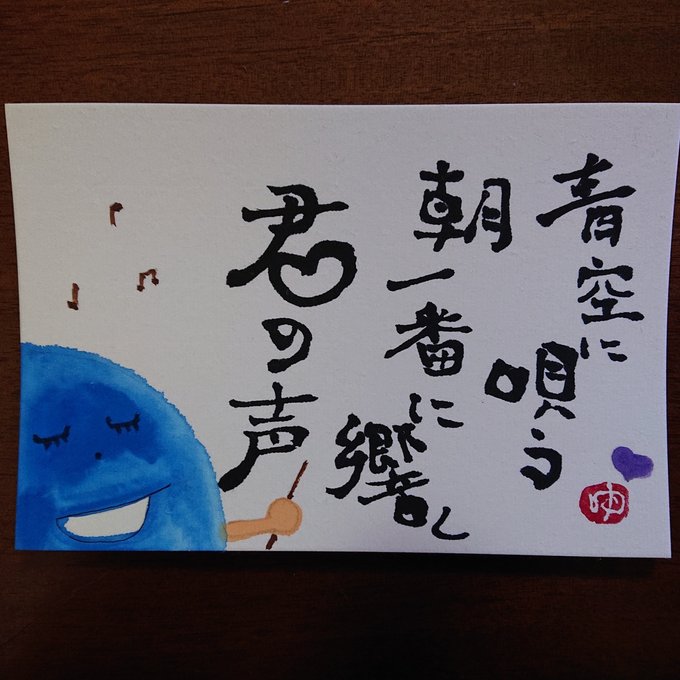 青空に
唄う
朝一番に
響し
君の声